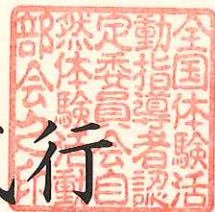 全国体験活
動指導者認
定委員会自
然体験活動
部会之印
行